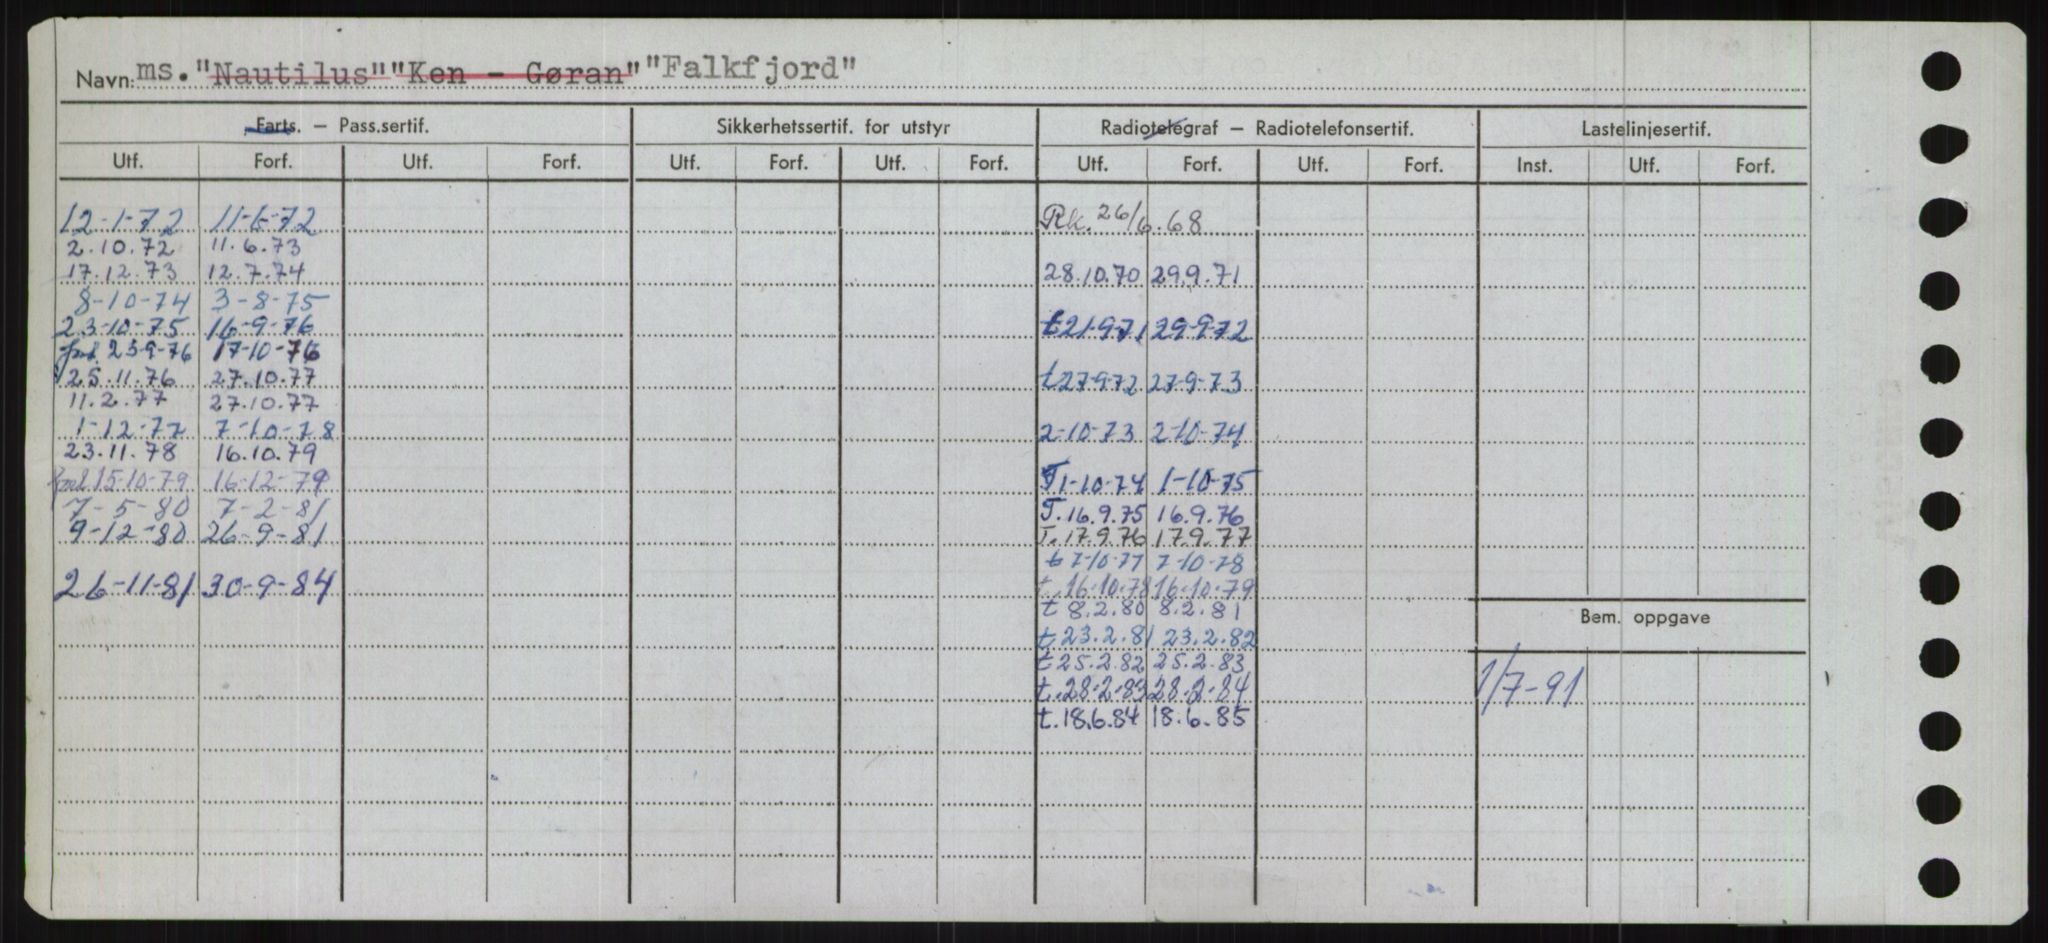 Navn: ms. "Nautilus" "Ken - Gøran" "Falkfjord"
Farts. – Pass.sertif. Sikkerhetssertif. for utstyr Radiotelegraf – Radiotelefonsertif. Lastelinjesertif.
Utf. Forf. Utf. Forf. Utf. Forf. Utf. Forf. Utf. Forf. Utf. Forf. Inst. Utf. Forf.
12-1-72 11-6-72 Rk. 26/6.68
2.10.72 11.6.73
17.12.73 12.7.74 28.10.70 29.9.71
8-10-74 3-8-75
23-10-75 16-9-76 t 21-9-71 29-9-72
forl. 23-9-76 17-10-76
25.11.76 27.10.77 t 27-9-72 27-9-73
11.2.77 27.10.77
1-12-77 7-10-78 2-10-73 2-10-74
23.11.78 16.10.79
forl 15-10-79 16-12-79 T 1-10-74 1-10-75
7-5-80 7-2-81 T. 16.9.75 16.9.76
9-12-80 26-9-81 T. 17.9.76 17.9.77
t 7-10-77 7-10-78
26-11-81 30-9-84 t. 16-10-78 16-10-79
t 8.2.80 8.2.81
Bem. oppgave
t 23.2.81 23.2.82
t 25.2.82 25.2.83
t. 28-2-83 28-2-84 1/7-91
t. 18.6.84 18.6.85